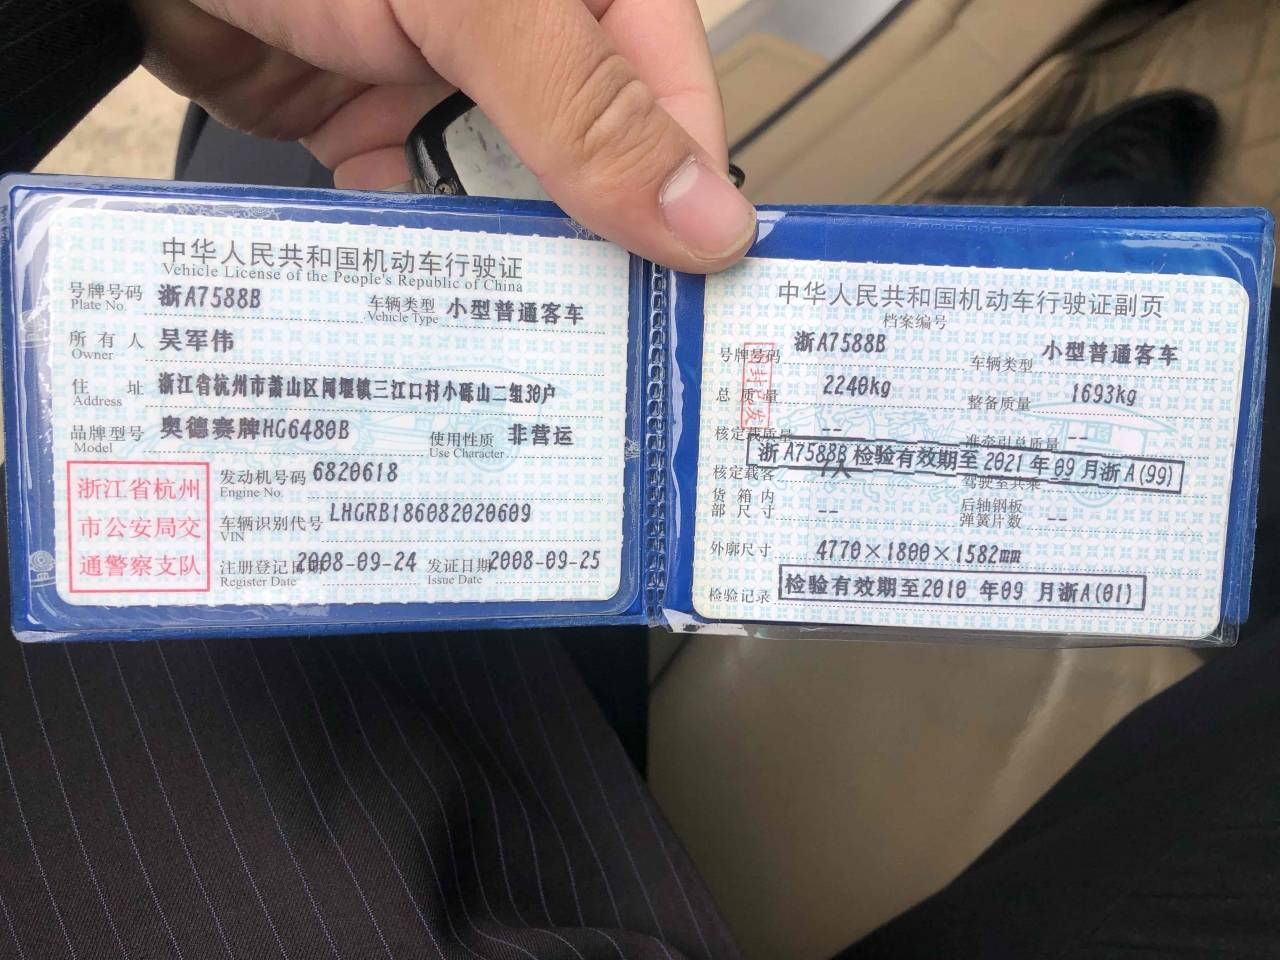 中华人民共和国机动车行驶证
Vehicle License of the People's Republic of China
号牌号码 浙A7588B 车辆类型 小型普通客车
Plate No. Vehicle Type
所有人 吴军伟
Owner
住址 浙江省杭州市萧山区闻堰镇三江口村小砾山二组30户
Address
品牌型号 奥德赛牌HG6480B 使用性质 非营运
Model Use Character
浙江省杭州
市公安局交
通警察支队
发动机号码 6820618
Engine No.
车辆识别代号 LHGRB186082020609
VIN
注册登记日期 2008-09-24 发证日期 2008-09-25
Register Date Issue Date
中华人民共和国机动车行驶证副页
档案编号
号牌号码 浙A7588B 车辆类型 小型普通客车
总质量 2240kg 整备质量 1693kg
核定载质量 -- 准牵引总质量 --
浙A7588B 检验有效期至 2021 年 09 月浙A(99)
核定载客 7人 驾驶室共乘 --
货箱内部尺寸 -- 后轴钢板弹簧片数 --
外廓尺寸 4770×1800×1582mm
检验记录 检验有效期至2010 年09 月浙A(01)